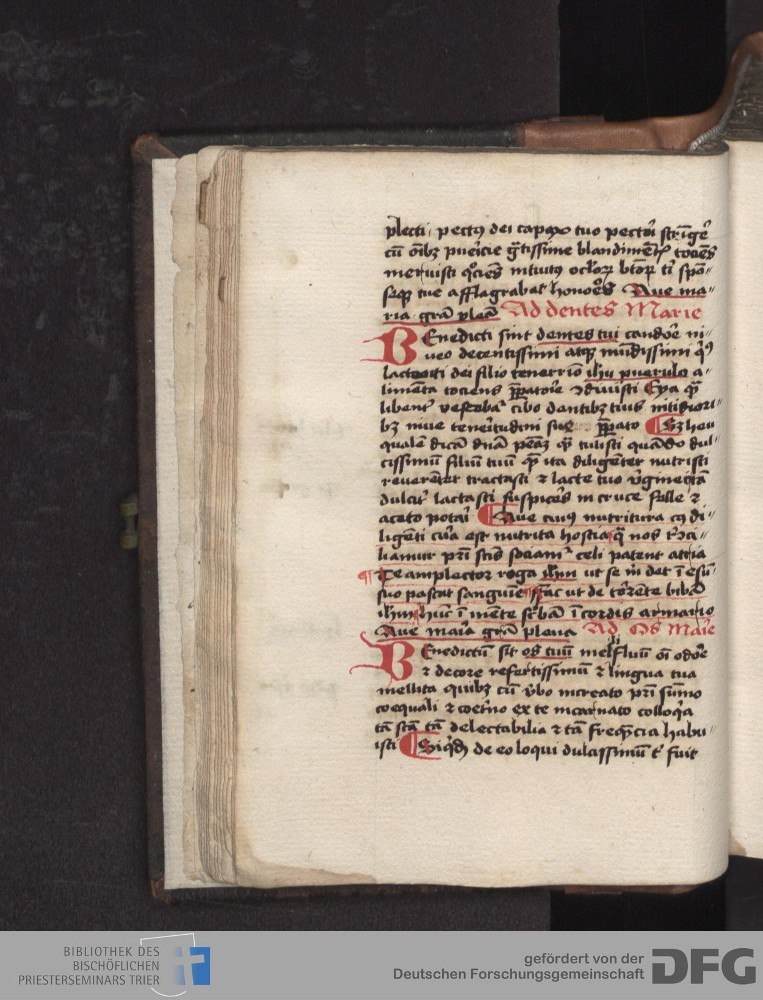 plecti · pectꝯ dei tuo pectori strīgeͬ
cū oībꝫ pueície gͣtissime blandimētꝭ tociēs
meruisti qͦciēs intuitꝯ oclorꝝ btorꝝ ti spō-
seqꝫ tue afflagrabāt honoēs Aue ma-
ria · grā pleā Ad dentes Marie
Benedicti sint dentes tui candoͤe ni-
ueo decentissimi atqꝫ mūdissimi qͥꝯ
lacteoli dei filio tenerrīo ihu puerulo a-
limēta tociens diuisti Cpa qͣ
libent vescebaͬ cibo dentibꝫ tuis nitidiori-
bꝫ niue teneritudini sue ꝑpato ¶ Sꝫ heu
qualē dicā dnā penā qͣ tulisti quādo dul-
cissimū filiū tuū qͣ ita diligēter nutristi
reuerēter tractasti ⁊ lacte tuo vͬgineo tā
dulciͬ lactasti suspiceͬs in cruce felle ⁊
aceto potari ¶ Aue cuiꝯ nutritura cꝫ di-
ligēti cura est nutrita hostia qͣ nos rͬcͦci-
liamur pri scīs sociamͬ celi patent atria
¶ Te amplector roga ihm ut se m̄ det ī esū
suo pascat sanguīe ¶ fac ut de torēte bibā
ihm hūc ī mēte scͬbā ī cordis armario
Aue maria grā plena Ad Os Maīe
Benedictū sit os tuū mellifluū oī odoͤe
⁊ decore refertissimū ⁊ lingua tua
mellita quibꝫ cū vͬbo increato pri sūmo
coequali ⁊ coetͬno ex te incarnato colloqͥa
tā scā tā delectabilia ⁊ tā freqͣcia habu-
isti ¶ Siqͥdē de eo loqui dulcissimū tͥ fuit
BIBLIOTHEK DES
BISCHÖFLICHEN
PRIESTERSEMINARS TRIER
gefördert von der
Deutschen Forschungsgemeinschaft
DFG